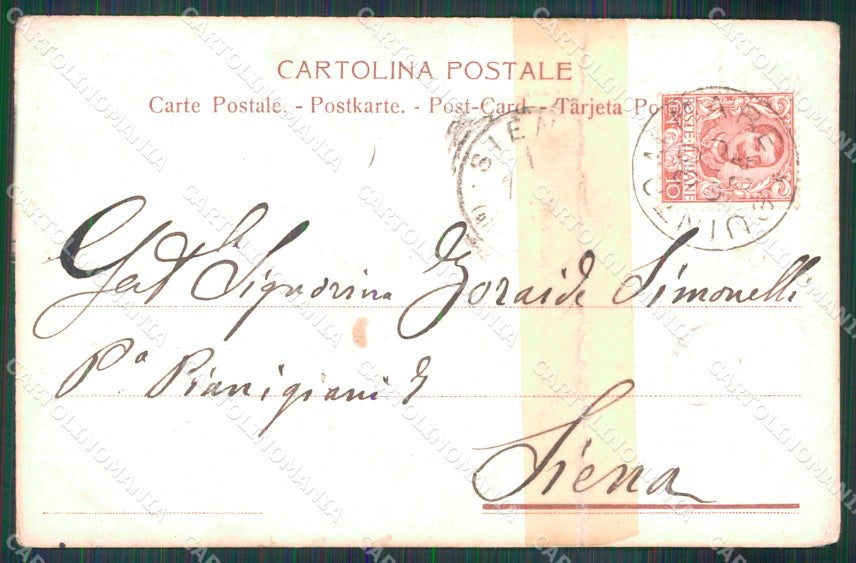 CARTOLINA POSTALE
Carte Postale. - Postkarte. - Post-Card - Tarjeta Po
POSTE ITALIANE
SIENA
Gent.la Signorina Zoraide Simonelli
Pa Pianigiani 7
Siena
CARTOLINOMANIA